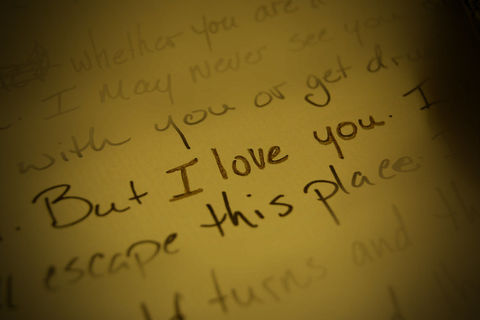 whether you are
. I may never see you
with you or get dru
. But I love you. I
ll escape this place.
turns and th